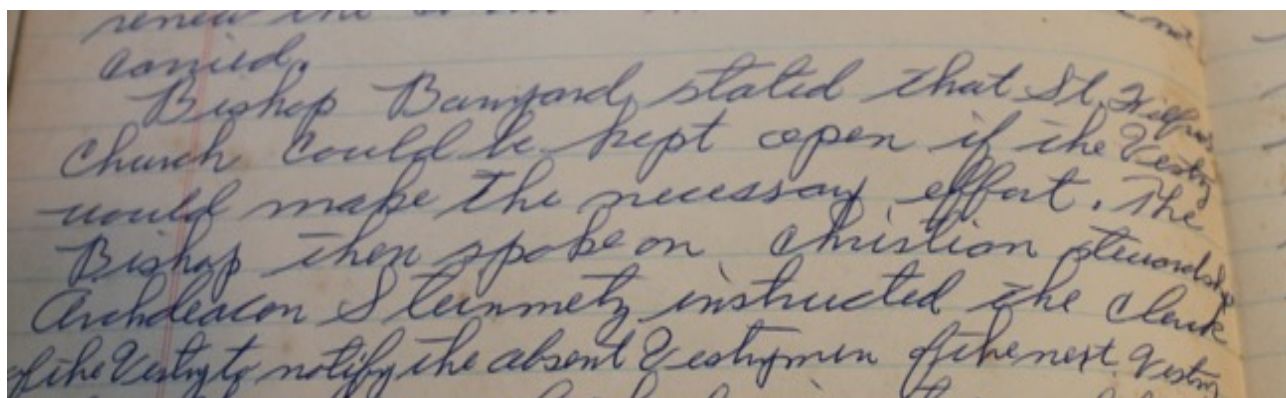 renew the
carried.
Bishop Banyard, stated that St. Wilfrids
Church could be kept open if the Vestry
would make the necessary effort. The
Bishop then spoke on Christian stewardship
Archdeacon Steinmetz instructed the Clerk
of the Vestry to notify the absent Vestrymen of the next Vestry